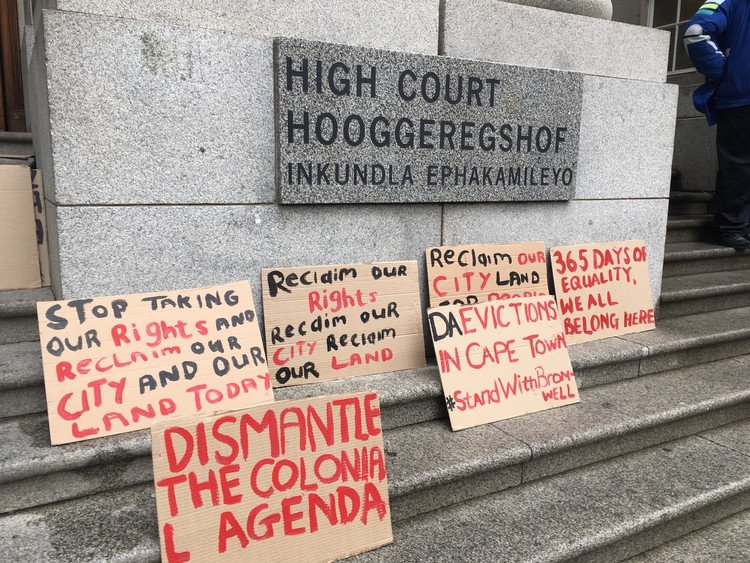 HIGH COURT
HOOGGEREGSHOF
INKUNDLA EPHAKAMILEYO
STOP TAKING
OUR Rights AND
RECLAIM OUR
CITY AND OUR
LAND TODAY
RECLAIM OUR
Rights
RECLAIM OUR
CITY RECLAIM
OUR LAND
RECLAIM OUR
CITY LAND
FOR PEOPLE
365 DAYS OF
EQUALITY,
WE ALL
BELONG HERE
DA EVICTIONS
IN CAPE TOWN
#StandWithBrom-
WELL
DISMANTLE
THE COLONIA
L AGENDA